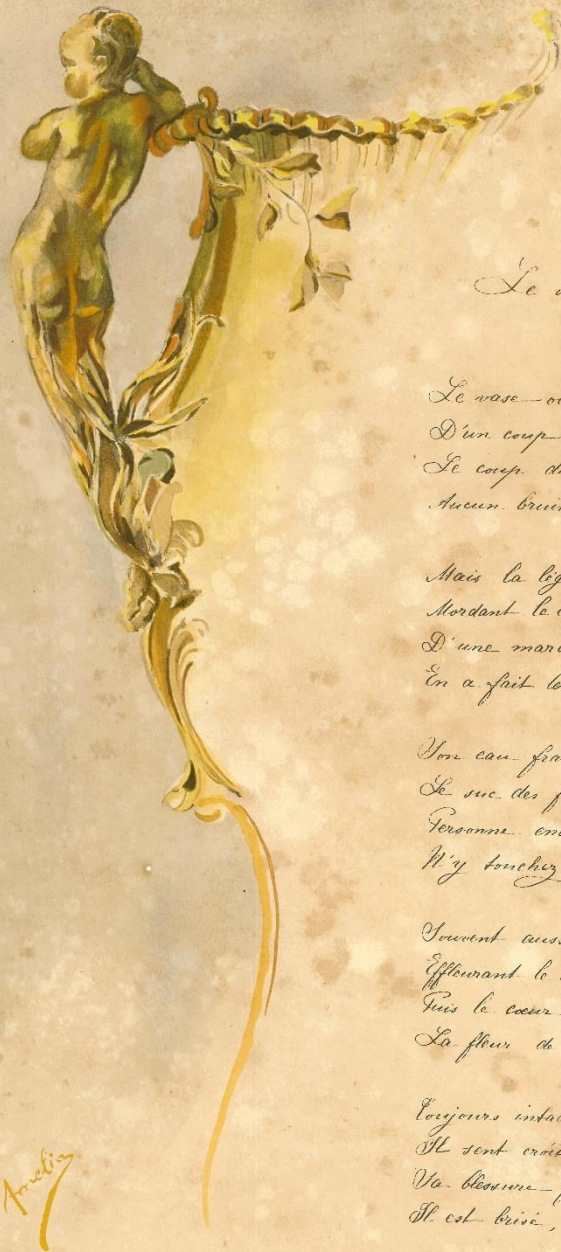 Le
Le vase
D'un coup
Le coup
Aucun bruit
Mais la
Mordant le
D'une
En a fait le
Son eau
Le suc des
Personne
N'y touchez
Souvent
Effleurant le
Puis le cœur
La fleur de
Toujours
Il sent
Sa blessure
Il est brisé,
Amelin